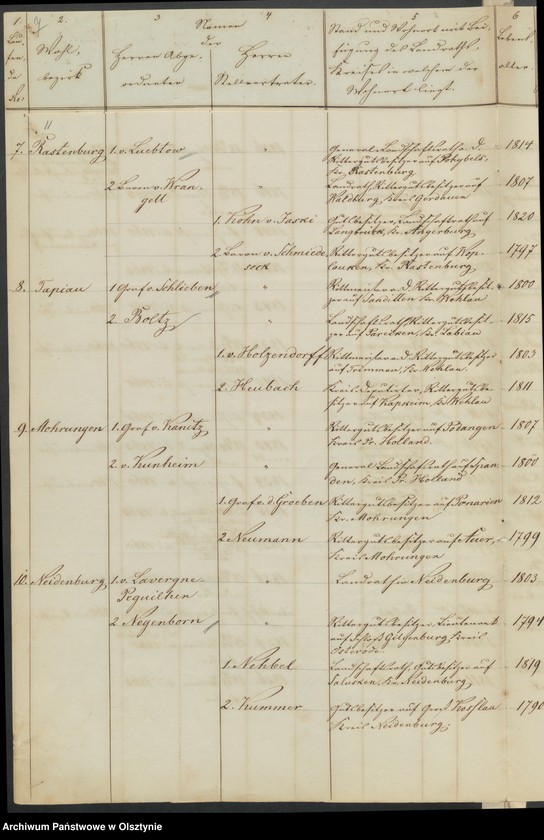 1. 2. 3 4 5 6
Namen
der
Wahl-
bezirk
Herren Abge-
ordneten
Herren
Stellvertreter.
Stand und Wohnort mit Bei-
fügung des Landräthl.
Kreises in welchem der
Wohnort liegt.
Lebens-
alter
11
7. Rastenburg 1. v. Luebtow " General-Landschaftsrath a. D. 1814
Rittergutsbesitzer auf
Kr. Rastenburg
2. Baron v. Wran- " Landrath, Rittergutsbesitzer auf 1807
gell Waldburg, Kreis Gerdauen
1. Kohn v. Jaski Gutsbesitzer, Landschaftsrath auf 1820
Langbrück, Kr. Angerburg
2. Baron v. Schmiede- Rittergutsbesitzer auf Wop- 1797
seck laucken, Kr. Rastenburg
8. Tapiau 1. Graf v. Schlieben " Rittmeister a. D. Rittergutsbesit- 1800
zer auf Sanditten Kr. Wehlau
2. Boltz " Landschaftsrath, Rittergutsbesit- 1815
zer auf Kr. Labiau
1. v. Holzendorff Rittmeister a. D. Rittergutsbesitzer 1803
auf Kr. Wehlau.
2. Heubach Kreis-Deputirter, Rittergutsbe- 1811
sitzer auf Kapkeim, Kr. Wehlau
9. Mohrungen 1. Graf v. Kanitz " Rittergutsbesitzer auf 1807
Kreis Pr. Holland.
2. v. Kunheim " General-Landschaftsrath auf Span- 1800
den, Kreis Pr. Holland
1. Graf v. d. Groeben Rittergutsbesitzer auf Ponarien 1812
Kr. Mohrungen
2. Neumann Rittergutsbesitzer auf 1799
Kreis Mohrungen
10. Neidenburg 1. v. Lavergne- " Landrath in Neidenburg 1803
Peguilhen
2. Negenborn " Rittergutsbesitzer, Lieutenant 1794
auf Schloß Gilgenburg, Kreis
Osterode.
1. Nehbel Landschaftsrath, Gutsbesitzer auf 1819
Salusken, Kr. Neidenburg
2. Kummer Gutsbesitzer auf Groß Koslau 1790
Kreis Neidenburg.
Archiwum Państwowe w Olsztynie